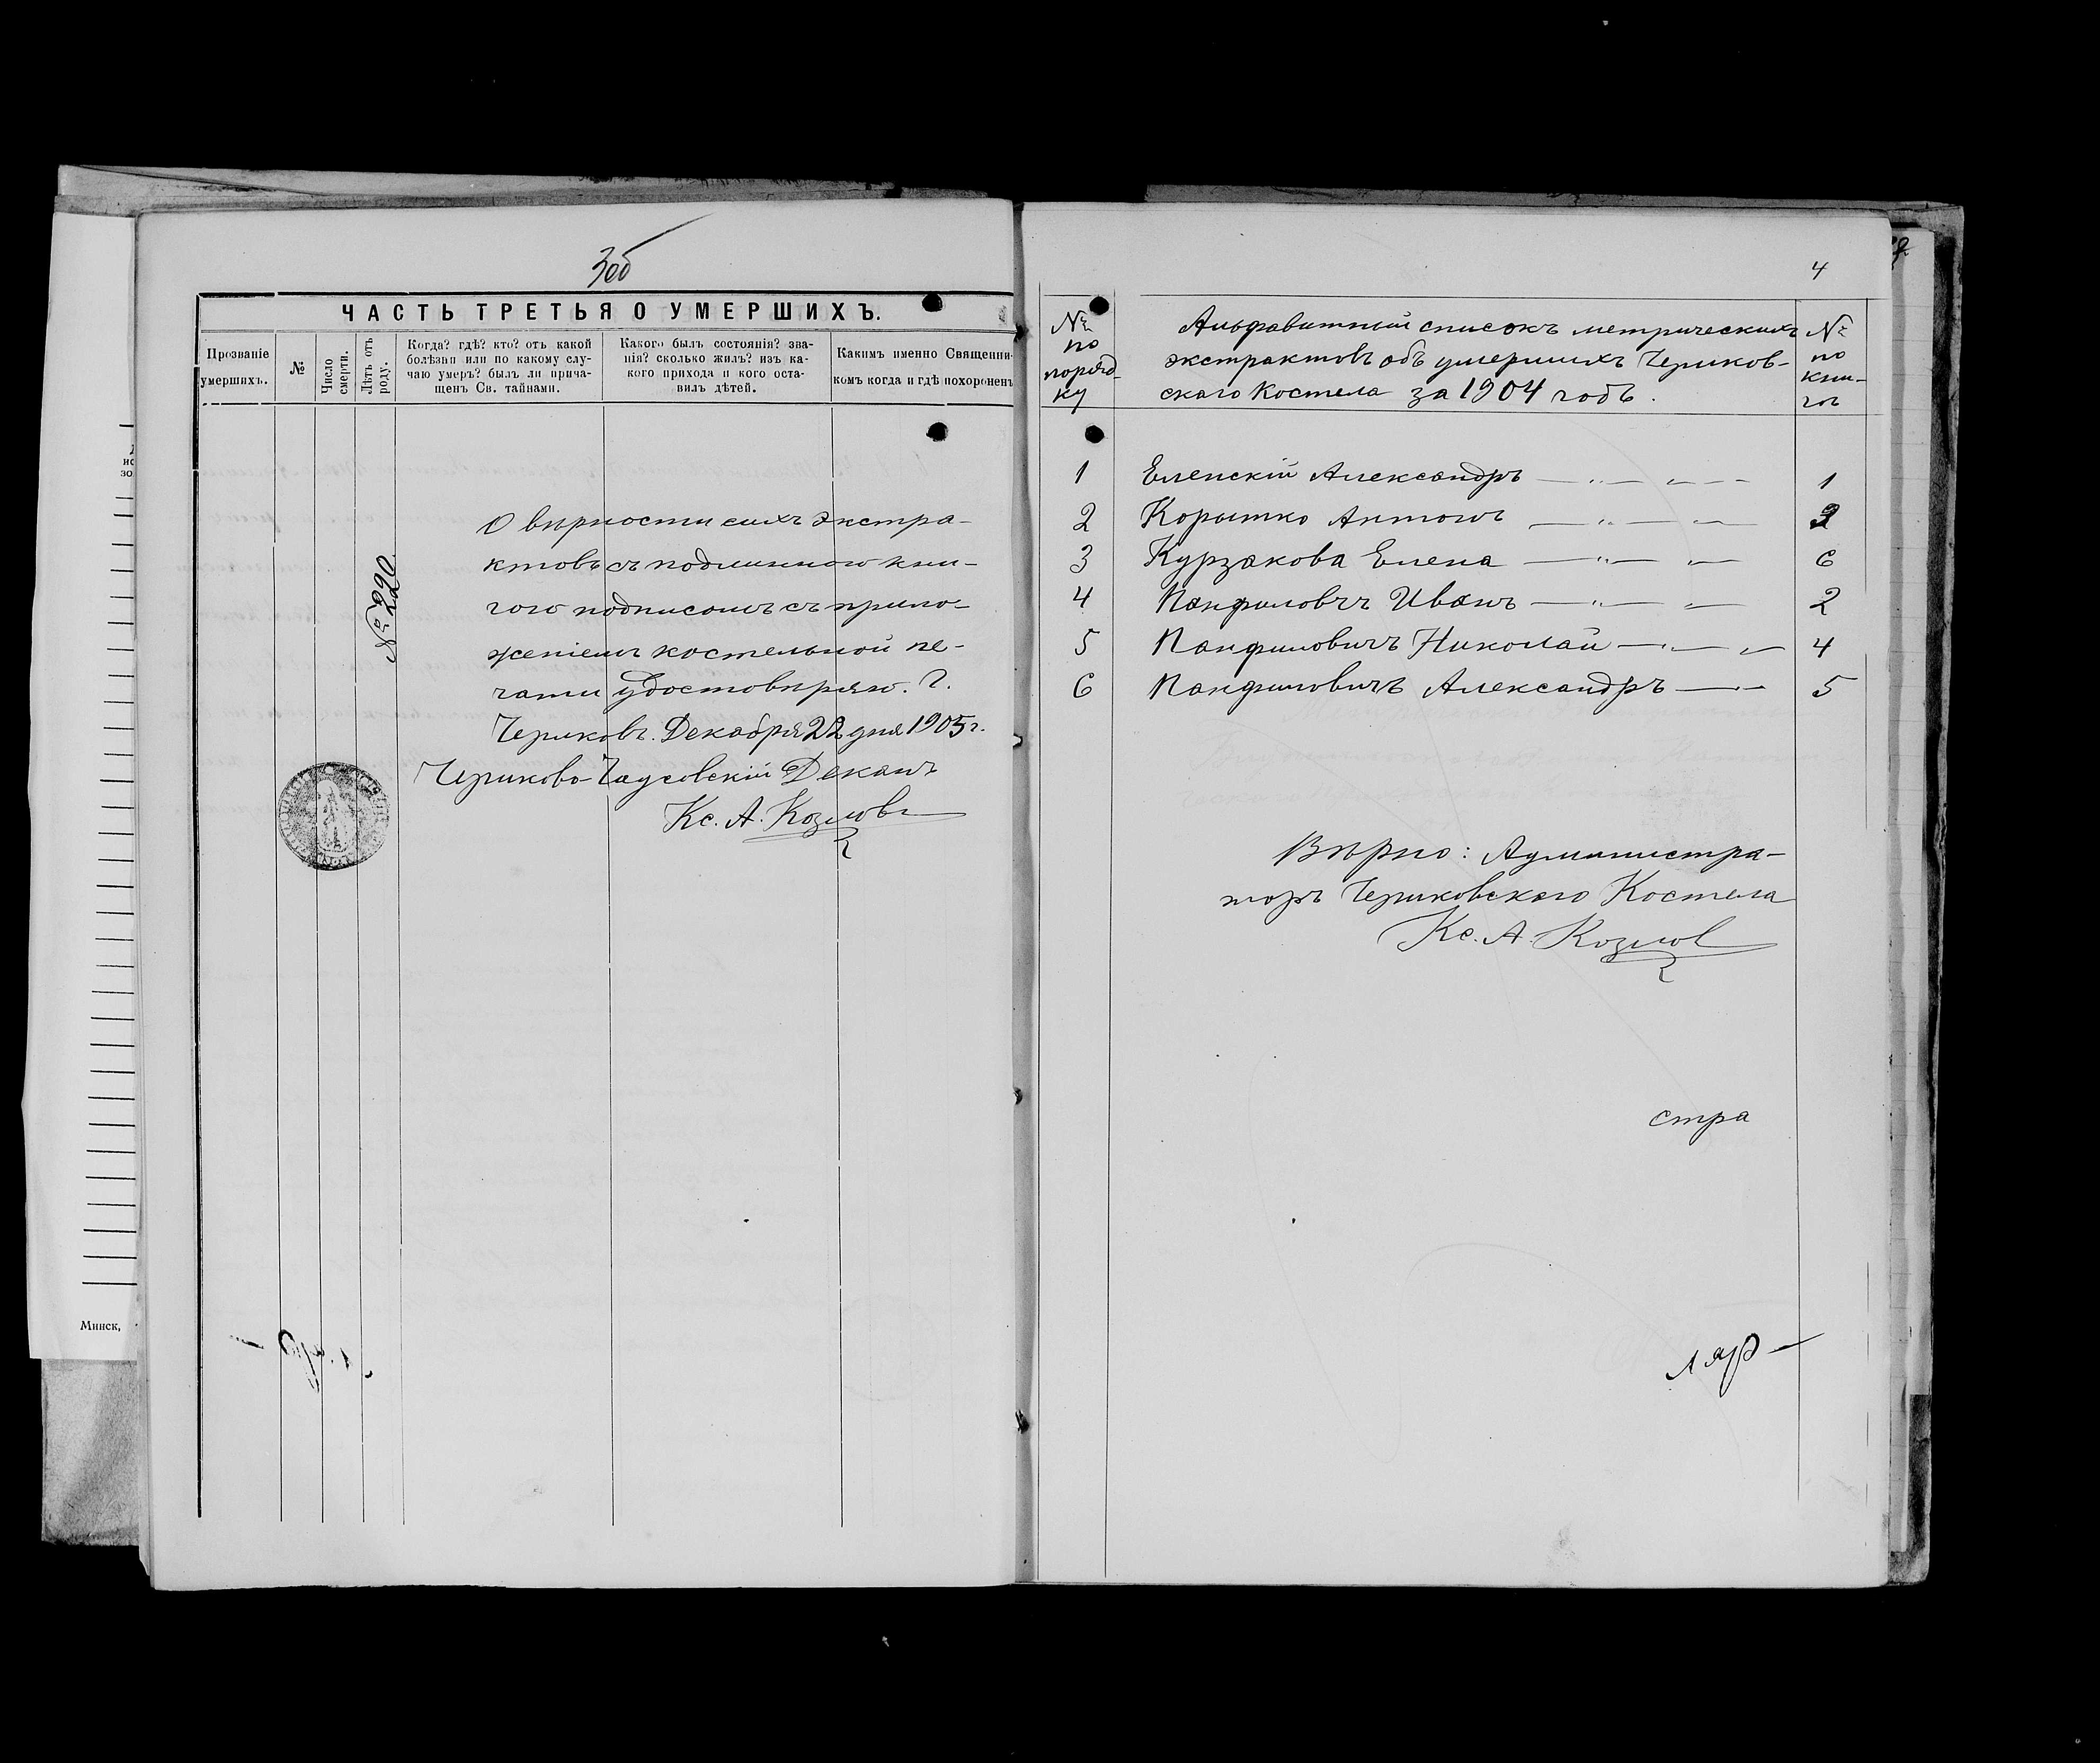 3об
ЧАСТЬ ТРЕТЬЯ О УМЕРШИХЪ.
Прозваніе
умершихъ.
№
Число
смерти.
Лѣтъ отъ
роду.
Когда? гдѣ? кто? отъ какой
болѣзни или по какому слу-
чаю умеръ? былъ ли прича-
щенъ Св. тайнами.
Какого былъ состоянія? зва-
нія? сколько жилъ? изъ ка-
кого прихода и кого оста-
вилъ дѣтей.
Какимъ именно Священни-
комъ когда и гдѣ похороненъ
№ 290
О вѣрности сихъ экстра-
ктовъ съ подлинною кни-
гою подписомъ съ прило-
женіемъ костельной пе-
чати удостовѣряю. Г.
Чериковъ. Декабря 22 дня 1905 г.
Чериково-Чаусовскій Деканъ
Кс. А. Козловъ
Минск,
4
№
по
поряд-
ку
Альфавитный списокъ метрическихъ
экстрактовъ объ умершихъ Чериков-
скаго Костела за 1904 годъ.
№
по
кни-
гѣ
1 Еленскій Александръ — „ — „ — 1
2 Корытко Антонъ — „ — „ — 3
3 Курзакова Елена — „ — „ — 6
4 Панфиловчъ Иванъ — „ — „ — 2
5 Панфиловичъ Николай — „ — „ — 4
6 Панфиловичъ Александръ — „ — 5
Вѣрно: Администра-
торъ Чериковскаго Костела
Кс. А. Козлов
стра